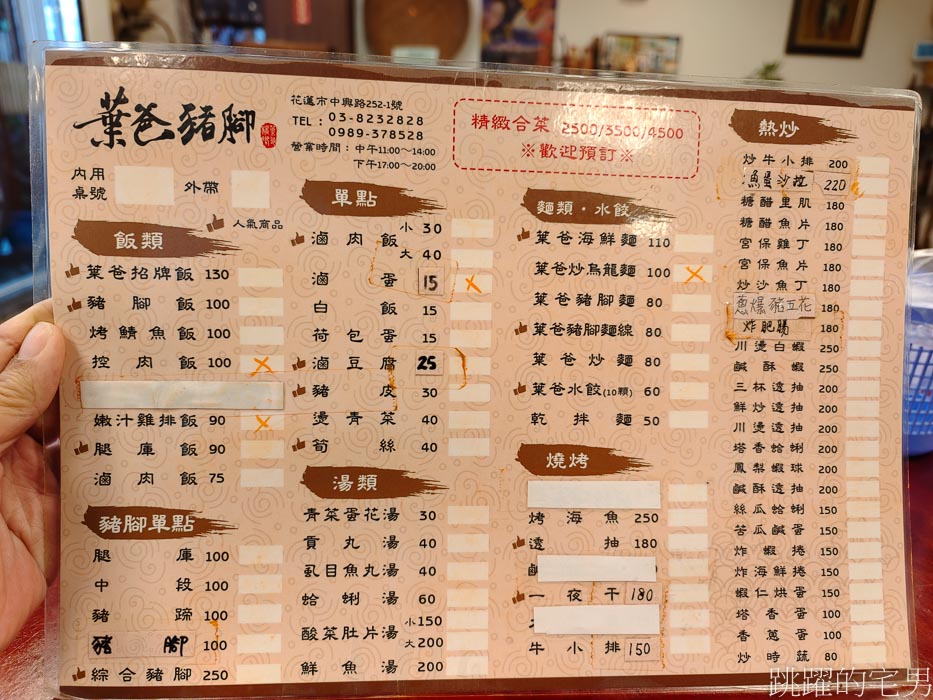 葉爸豬腳
花蓮市中興路252-1號
TEL：03-8232828
0989-378528
營業時間：中午11:00～14:00
下午17:00～20:00
精緻合菜 2500/3500/4500
※歡迎預訂※
內用
桌號
外帶
人氣商品
飯類
葉爸招牌飯 130
豬腳飯 100
烤鯖魚飯 100
控肉飯 100
嫩汁雞排飯 90
腿庫飯 90
滷肉飯 75
豬腳單點
腿庫 100
中段 100
豬蹄 100
豬腳 100
綜合豬腳 250
單點
滷肉飯 小30
大40
滷蛋 15
白飯 15
荷包蛋 15
滷豆腐 25
豬皮 30
燙青菜 40
筍絲 40
湯類
青菜蛋花湯 30
貢丸湯 40
虱目魚丸湯 40
蛤蜊湯 60
酸菜肚片湯 小150
大200
鮮魚湯 200
麵類・水餃
葉爸海鮮麵 110
葉爸炒烏龍麵 100
葉爸豬腳麵 80
葉爸豬腳麵線 80
葉爸炒麵 80
葉爸水餃(10顆) 60
乾拌麵 50
燒烤
烤海魚 250
透抽 180
鹹
一夜干 180
牛小排 150
熱炒
炒牛小排 200
漁蛋沙拉 220
糖醋里肌 180
糖醋魚片 180
宮保雞丁 180
宮保魚片 180
炒沙魚丁 180
蔥爆豬五花 180
炸肥腸 180
川燙白蝦 250
鹹酥蝦 250
三杯透抽 200
鮮炒透抽 200
川燙透抽 200
塔香蛤蜊 200
鳳梨蝦球 200
鹹酥透抽 200
絲瓜蛤蜊 150
苦瓜鹹蛋 150
炸蝦捲 150
炸海鮮捲 150
蝦仁烘蛋 150
塔香蛋 100
香蔥蛋 100
炒時蔬 80
跳躍的宅男